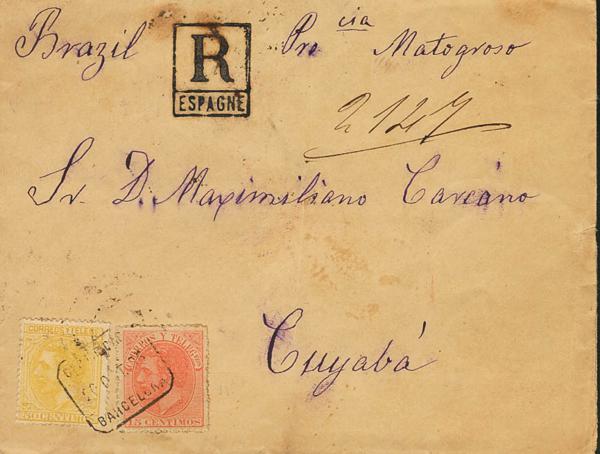 Brazil Pro cia Matogroso
R
ESPAGNE
2127
Sr. D. Maximiliano Carcano
Cuyabá
CORREOS Y TELEG
50 CENTIMOS
CORREOS Y TELEGFOS
15 CENTIMOS
BARCELONA